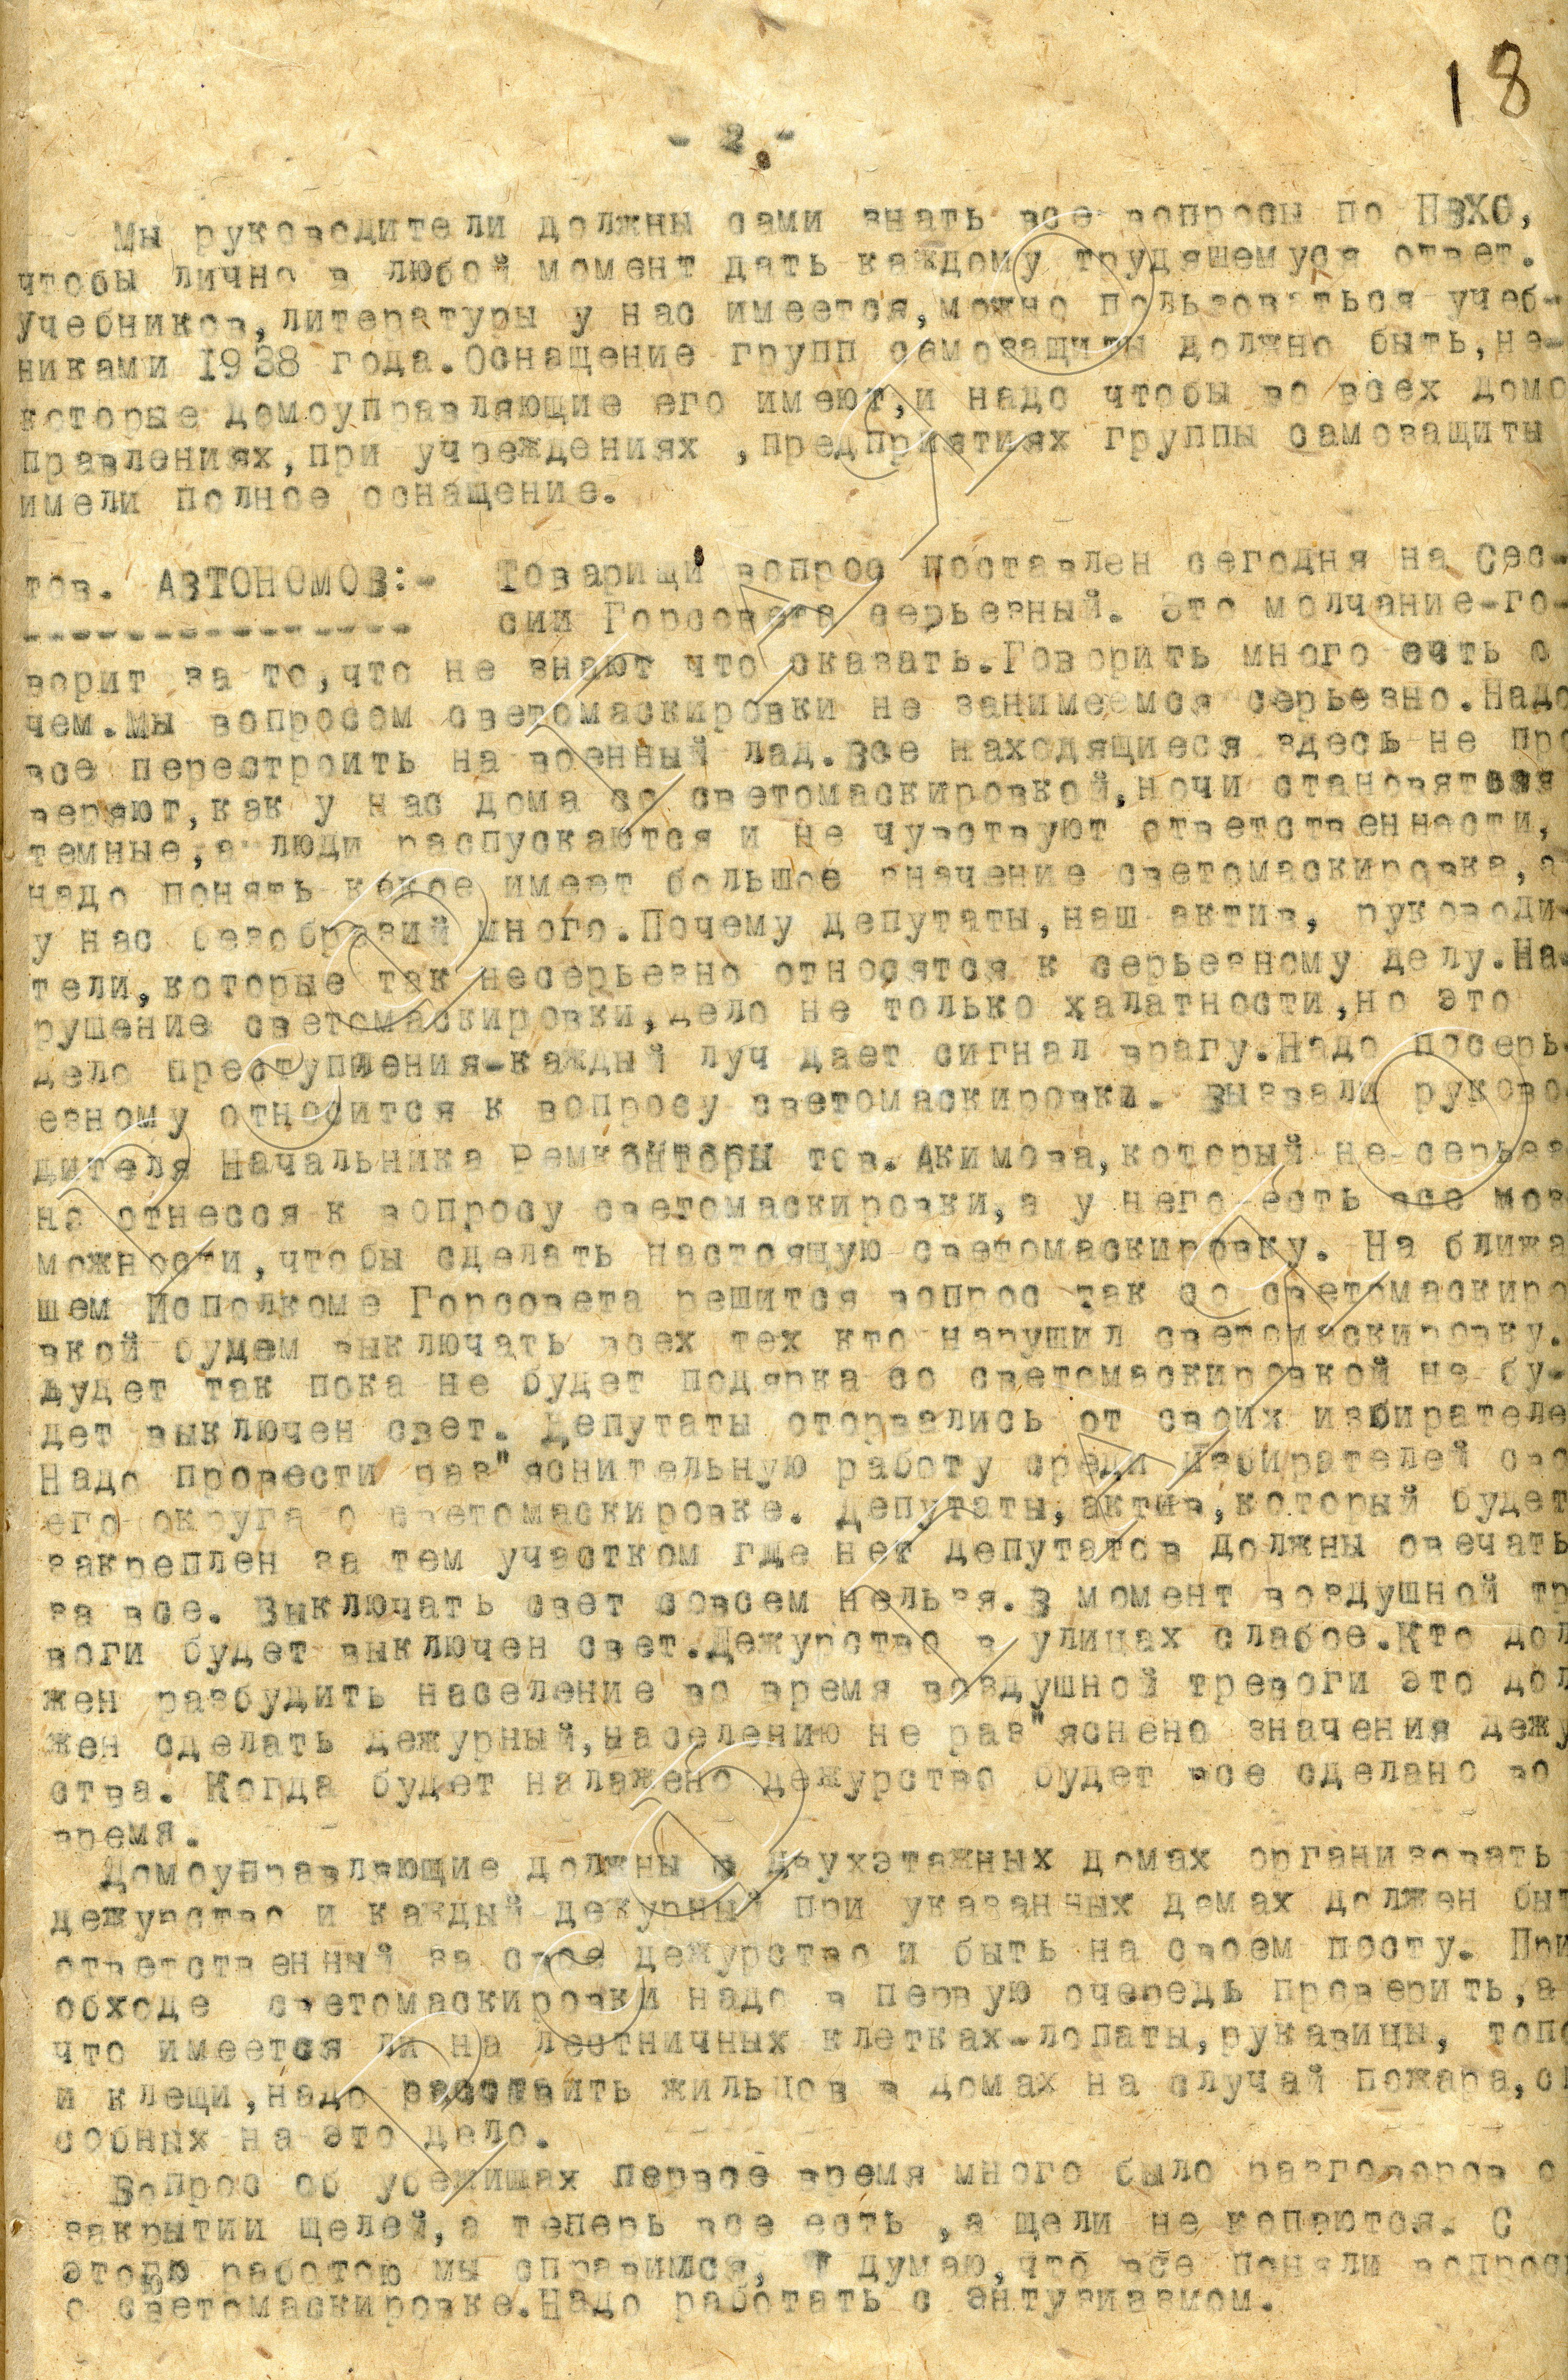 18
- 2.-
Мы руководители должны сами знать все вопросы по ПВХО,
чтобы лично в любой момент дать каждому трудящемуся ответ.
Учебников,литературы у нас имеется,можно пользоваться учеб-
никами 1938 года.Оснащение групп самозащиты должно быть,не-
которые домоуправляющие его имеют,и надо чтобы во всех домо
правлениях,при учреждениях ,предприятиях группы самозащиты
имели полное оснащение.
тов. АВТОНОМОВ:- Товарищи вопрос поставлен сегодня на Сес-
---------------- сии Горсовета серьезный. Это молчание-го-
ворит за то,что не знают что сказать.Говорить много есть о
чем.Мы вопросом светомаскировки не занимеемся серьезно.Надо
все перестроить на военный лад.Все находящиеся здесь не про
веряют,как у нас дома со светомаскировкой,ночи становятся
темные,а люди распускаются и не чувствуют ответственности,
надо понять какое имеет большое значение светомаскировка,а
у нас безобразий много.Почему депутаты,наш актив, руководи-
тели,которые так несерьезно относятся к серьезному делу.На-
рушение светомаскировки,дело не только халатности,но это
дело преступления-каждый луч дает сигнал врагу.Надо посерь-
езному относится к вопросу светомаскировки. Вызвали руково-
дителя Начальника Ремконторы тов. Акимова,который не серьез
на отнесся к вопросу светомаскировки,а у него есть все воз
можности,чтобы сделать настоящую светомаскировку. На ближа
шем Исполкоме Горсовета решится вопрос так со светомаскиро
вкой будем выключать всех тех кто нарушил светомаскировку.
Будет так пока не будет подярка со светомаскировкой не бу-
дет выключен свет. Депутаты оторвались от своих избирателе
Надо провести раз"яснительную работу среди избирателей сво
его округа о светомаскировке. Депутаты,актив,который будет
закреплен за тем участком где нет депутатов должны овечать
за все. Выключать свет совсем нельзя.В момент воздушной тр
воги будет выключен свет.Дежурство в улицах слабое.Кто дол
жен разбудить население во время воздушной тревоги это дол
жен сделать дежурный,населению не раз"яснено значения дежу
ства. Когда будет налажено дежурство будет все сделано во
время.
Домоуправляющие должны в двухэтажных домах организовать
дежурство и каждый дежурный при указанных домах должен быт
ответственный за свое дежурство и быть на своем посту. При
обходе светомаскировки надо в первую очередь проверить,а
что имеется ли на лестничных клетках-лопаты,рукавицы, топо
и клещи,надо расставить жильцов в домах на случай пожара,сп
собных на это дело.
Вопрос об убежищах первое время много было разговоров о
закрытии щелей,а теперь все есть ,а щели не копаются. С
этою работою мы справимся, Я думаю,что все поняли вопрос
о светомаскировке.Надо работать с энтузиазмом.